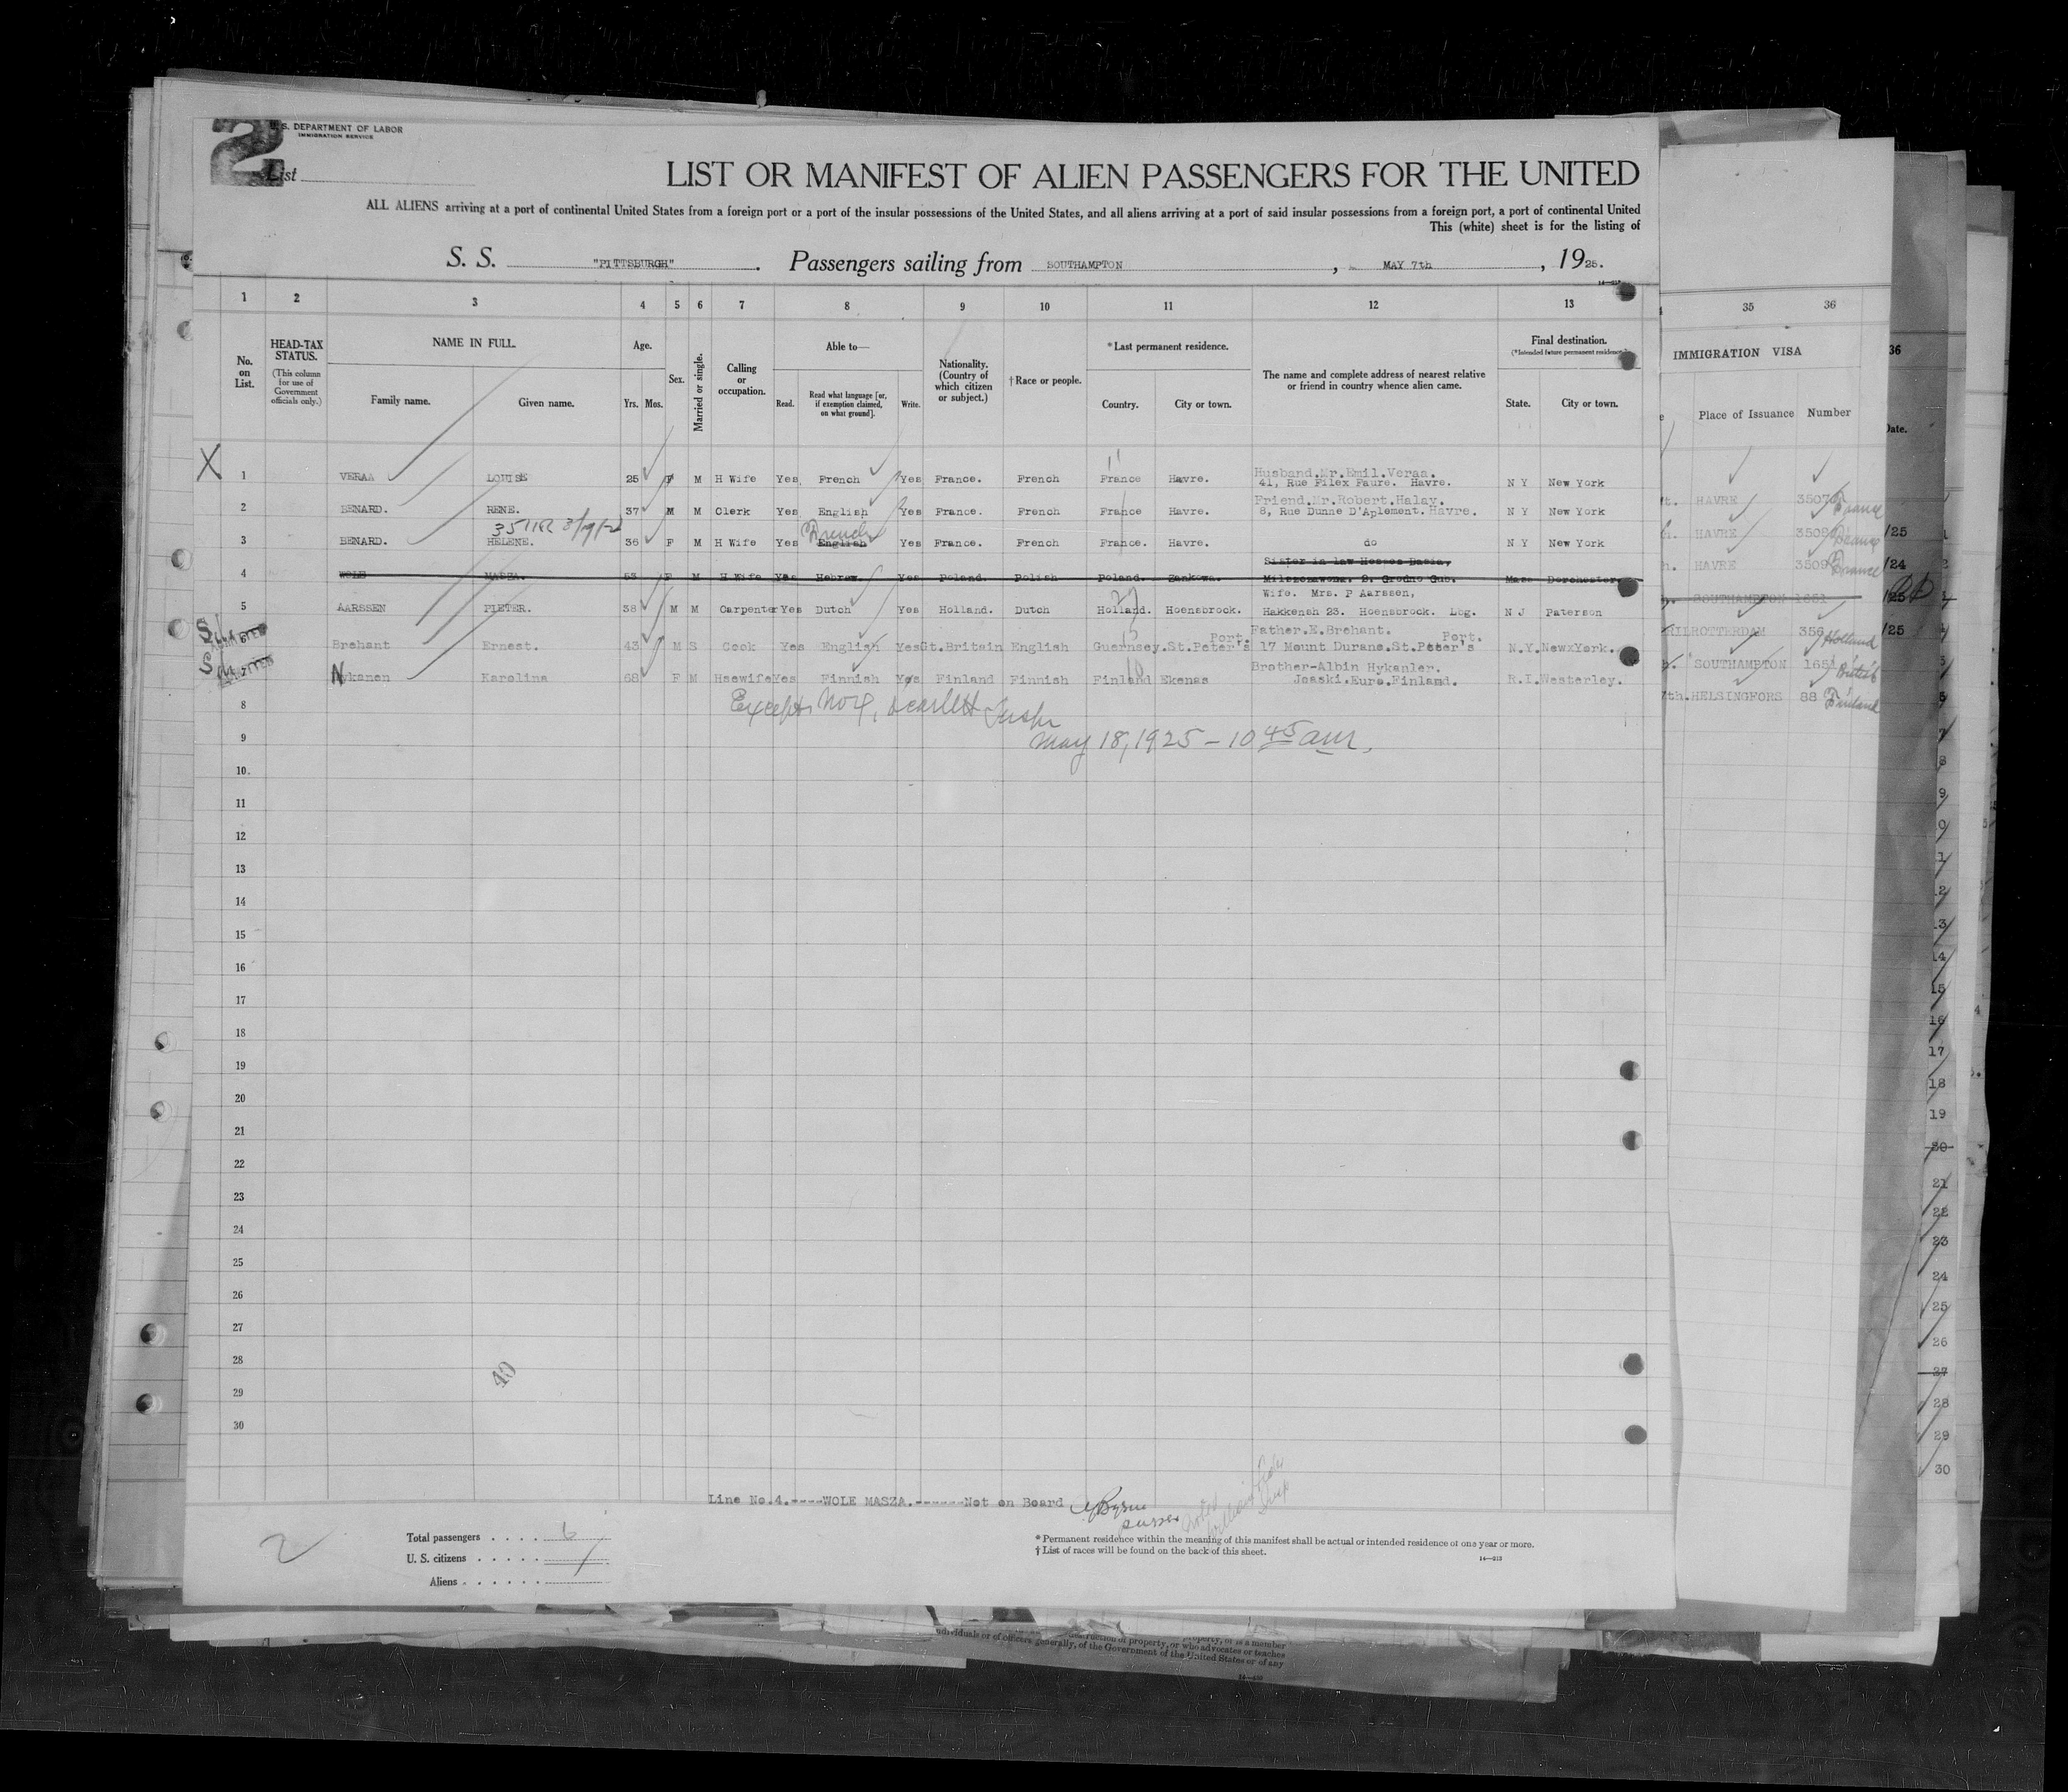 2
U. S. DEPARTMENT OF LABOR
IMMIGRATION SERVICE
List
LIST OR MANIFEST OF ALIEN PASSENGERS FOR THE UNITED
ALL ALIENS arriving at a port of continental United States from a foreign port or a port of the insular possessions of the United States, and all aliens arriving at a port of said insular possessions from a foreign port, a port of continental United
This (white) sheet is for the listing of
S. S. "PITTSBURGH". Passengers sailing from SOUTHAMPTON, MAY 7th, 1925.
1 2 3 4 5 6 7 8 9 10 11 12 13 35 36
No. on List.
HEAD-TAX STATUS.
(This column for use of Government officials only.)
NAME IN FULL.
Family name. Given name.
Age.
Yrs. Mos.
Sex.
Married or single.
Calling or occupation.
Able to—
Read. Read what language [or, if exemption claimed, on what ground]. Write.
Nationality. (Country of which citizen or subject.)
†Race or people.
*Last permanent residence.
Country. City or town.
The name and complete address of nearest relative or friend in country whence alien came.
Final destination.
(*Intended future permanent residence)
State. City or town.
IMMIGRATION VISA
Place of Issuance Number
36
Date.
X 1 VERAA LOUISE 25 F M H Wife Yes French Yes France. French France Havre. Husband.Mr.Emil.Veraa. 41, Rue Filex Faure. Havre. N Y New York
HAVRE 3507 France
2 BENARD. RENE. 37 M M Clerk Yes English Yes France. French France Havre. Friend.Mr.Robert.Halay. 8, Rue Dunne D'Aplement. Havre. N Y New York
HAVRE 3508 France /25
3 BENARD. HELENE. 36 F M H Wife Yes English French Yes France. French France. Havre. do N Y New York
HAVRE 3509 France /24
4 WOLE MASZA. 53 F M H Wife Yes Hebrew. Yes Poland. Polish Poland. Zankowa. Sister in law Hosses Basia, Milszonawona. 2. Grodno Gub. Mass Dorchester
SOUTHAMPTON 1651 /25
5 AARSSEN PIETER. 38 M M Carpenter Yes Dutch Yes Holland. Dutch Holland. Hoensbrock. Wife. Mrs. P Aarssen, Hakkensh 23. Hoensbrock. Lbg. N J Paterson
ROTTERDAM 356 Holland /25
Brehant Ernest. 43 M S Cook Yes English Yes Gt.Britain English Guernsey.St.Peter's Port. Father.E.Brehant. 17 Mount Durane.St.Peter's Port. N.Y. New York.
SOUTHAMPTON 1651 British
Nykanen Karolina 68 F M Hsewife Yes Finnish Yes Finland Finnish Finland Ekenas Brother-Albin Hykanler. Joaski.Euro.Finland. R.I. Westerley.
7th. HELSINGFORS 88 Finland
8
Except No 4, Scarlett Insp
9
May 18, 1925 - 10 45 am.
10
11
12
13
14
15
16
17
18
19
20
21
22
23
24
25
26
27
28
29
30
40
Line No.4.----WOLE MASZA.------Not on Board
Purser
2
Total passengers . . . . 6
U. S. citizens . . . . . .
Aliens . . . . . .
* Permanent residence within the meaning of this manifest shall be actual or intended residence of one year or more.
† List of races will be found on the back of this sheet.
14—213
property, or is a member
destruction of property, or who advocates or teaches
individuals or of officers generally, of the Government of the United States or of any